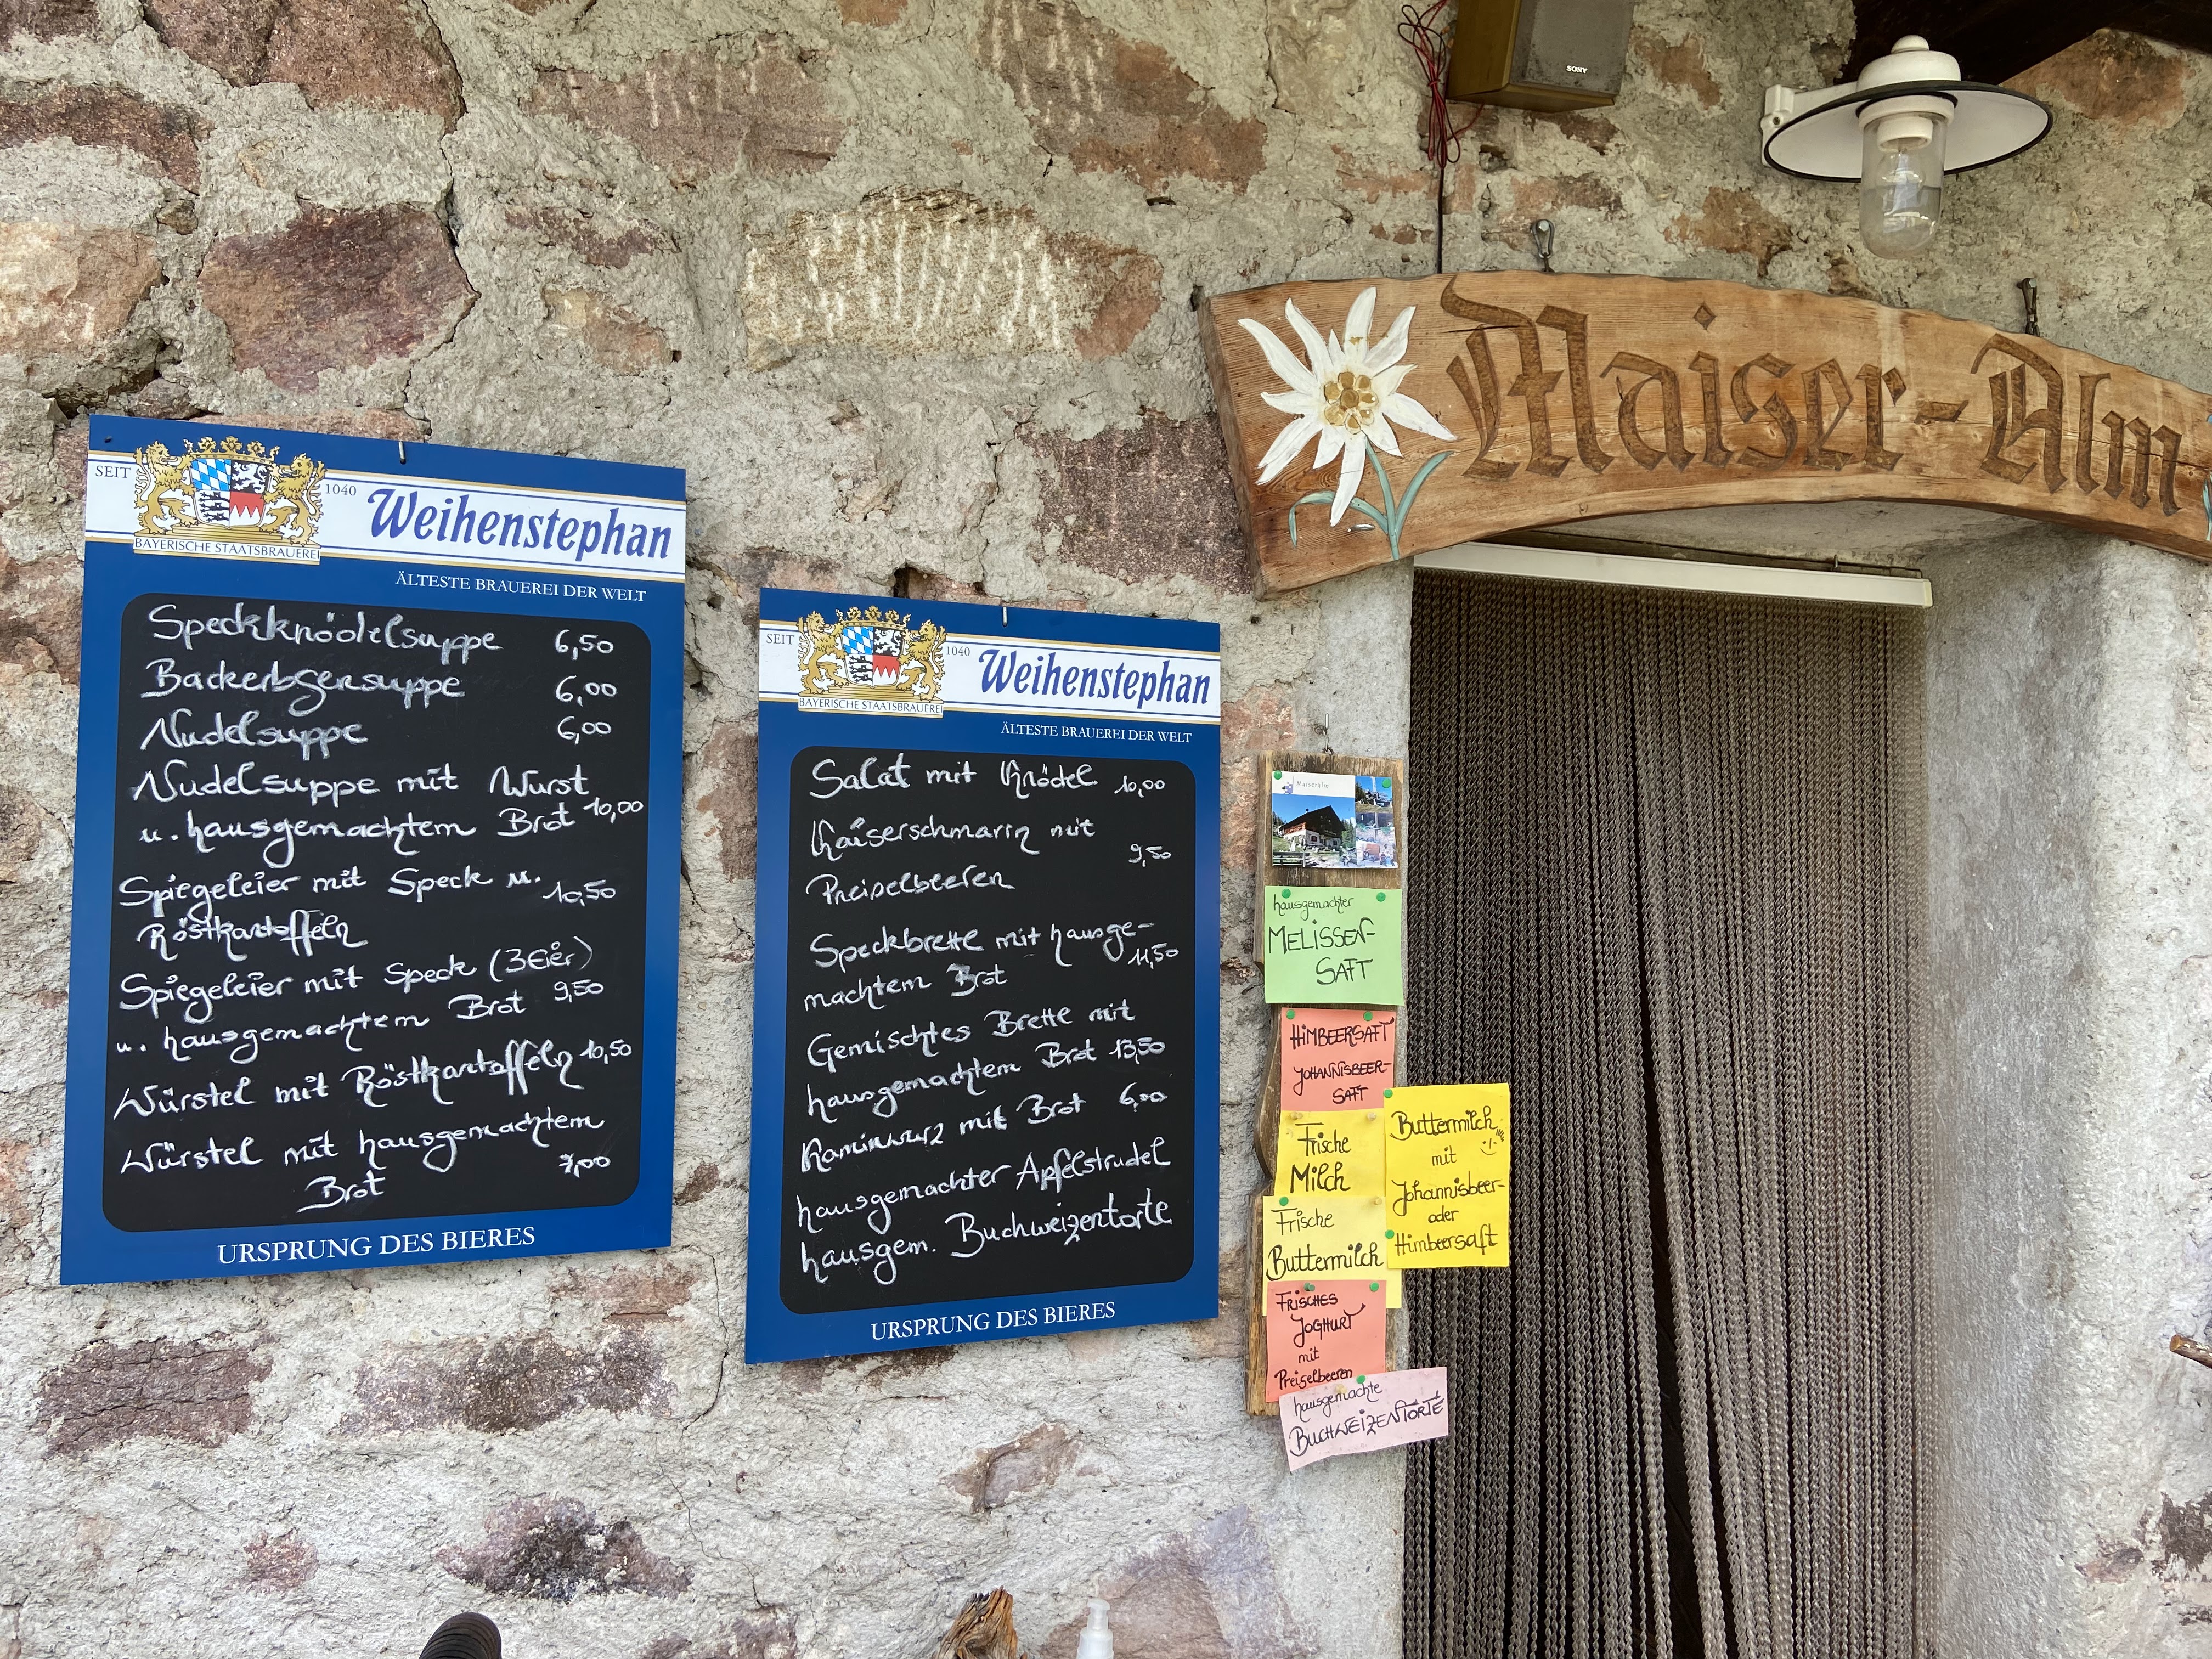 SONY
Maiser-Alm
SEIT 1040
BAYERISCHE STAATSBRAUEREI
Weihenstephan
ÄLTESTE BRAUEREI DER WELT
Speckknödelsuppe 6,50
Backerbsensuppe 6,00
Nudelsuppe 6,00
Nudelsuppe mit Wurst
u. hausgemachtem Brot 10,00
Spiegeleier mit Speck u. 10,50
Röstkartoffeln
Spiegeleier mit Speck (3Eier)
u. hausgemachtem Brot 9,50
Würstel mit Röstkartoffeln 10,50
Würstel mit hausgemachtem
Brot 7,00
URSPRUNG DES BIERES
SEIT 1040
BAYERISCHE STAATSBRAUEREI
Weihenstephan
ÄLTESTE BRAUEREI DER WELT
Salat mit Knödel 10,00
Kaiserschmarrn mit
9,50
Preiselbeeren
Speckbrettl mit hausge-
machtem Brot 11,50
Gemischtes Brettl mit
hausgemachtem Brot 13,50
Kaminwurz mit Brot 6,00
hausgemachter Apfelstrudel
hausgem. Buchweizentorte
URSPRUNG DES BIERES
Maiseralm
hausgemachter
MELISSEN-
SAFT
HIMBEERSAFT
JOHANNISBEER-
SAFT
Frische
Milch
Buttermilch
mit
Johannisbeer-
oder
Himbeersaft
Frische
Buttermilch
FRISCHES
JOGHURT
mit
Preiselbeeren
hausgemachte
BUCHWEIZENTORTE